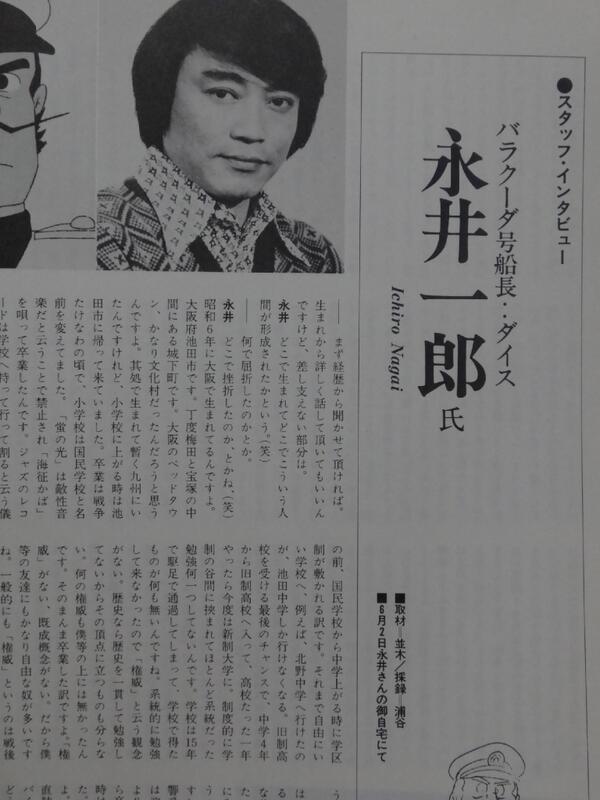 ●スタッフ・インタビュー
バラクーダ号船長‥ダイス
永井一郎氏
Ichiro Nagai
■取材＝並木／採録＝浦谷
■6月2日永井さんの御自宅にて
―― まず経歴から聞かせて頂ければ。
生まれから詳しく話して頂いてもいいん
ですけど、差し支えない部分は。
永井 どこで生まれてどこでこういう人
間が形成されたかという。(笑)
―― 何で屈折したのかとか。
永井 どこで挫折したのか、とかね、(笑)
昭和6年に大阪で生まれてるんですよ。
大阪府池田市です。丁度梅田と宝塚の中
間にある城下町です。大阪のベッドタウ
ン、かなり文化村だったんだろうと思う
んですよ。其処で生まれて暫く九州にい
たんですけれど、小学校に上がる時は池
田市に帰って来ていました。卒業は戦争
たけなわの頃で、小学校は国民学校と名
前を変えてました。「蛍の光」は敵性音
楽だと云うことで禁止され「海征かば」
を唄って卒業したんです。ジャズのレコ
ードは学校へ持って行って割ると云う儀
の前、国民学校から中学上がる時に学区
制が敷かれる訳です。それまで自由にい
い学校へ、例えば、北野中学へ行けたの
が、池田中学しか行けなくなる。旧制高
校を受ける最後のチャンスで、中学4年
から旧制高校へ入って、高校たった一年
やったら今度は新制大学に。制度的に学
制の谷間に挟まれてほとんど系統だった
勉強何一つしてないんです。学校は15年
で駆足で通過してしまって、学校で得た
ものが何も無いんですね。系統的に勉強
して来なかったので「権威」と云う観念
がない。歴史なら歴史を一貫して勉強し
てないからその頂点に立つものも分らな
い。何の権威も僕等の上には無かったん
です。そのまんま卒業した訳ですよ。「権
威」がない、既成概念がない。だから僕
等の友達にもかなり自由な奴が多いです
ね。一般的にも「権威」というのは戦後